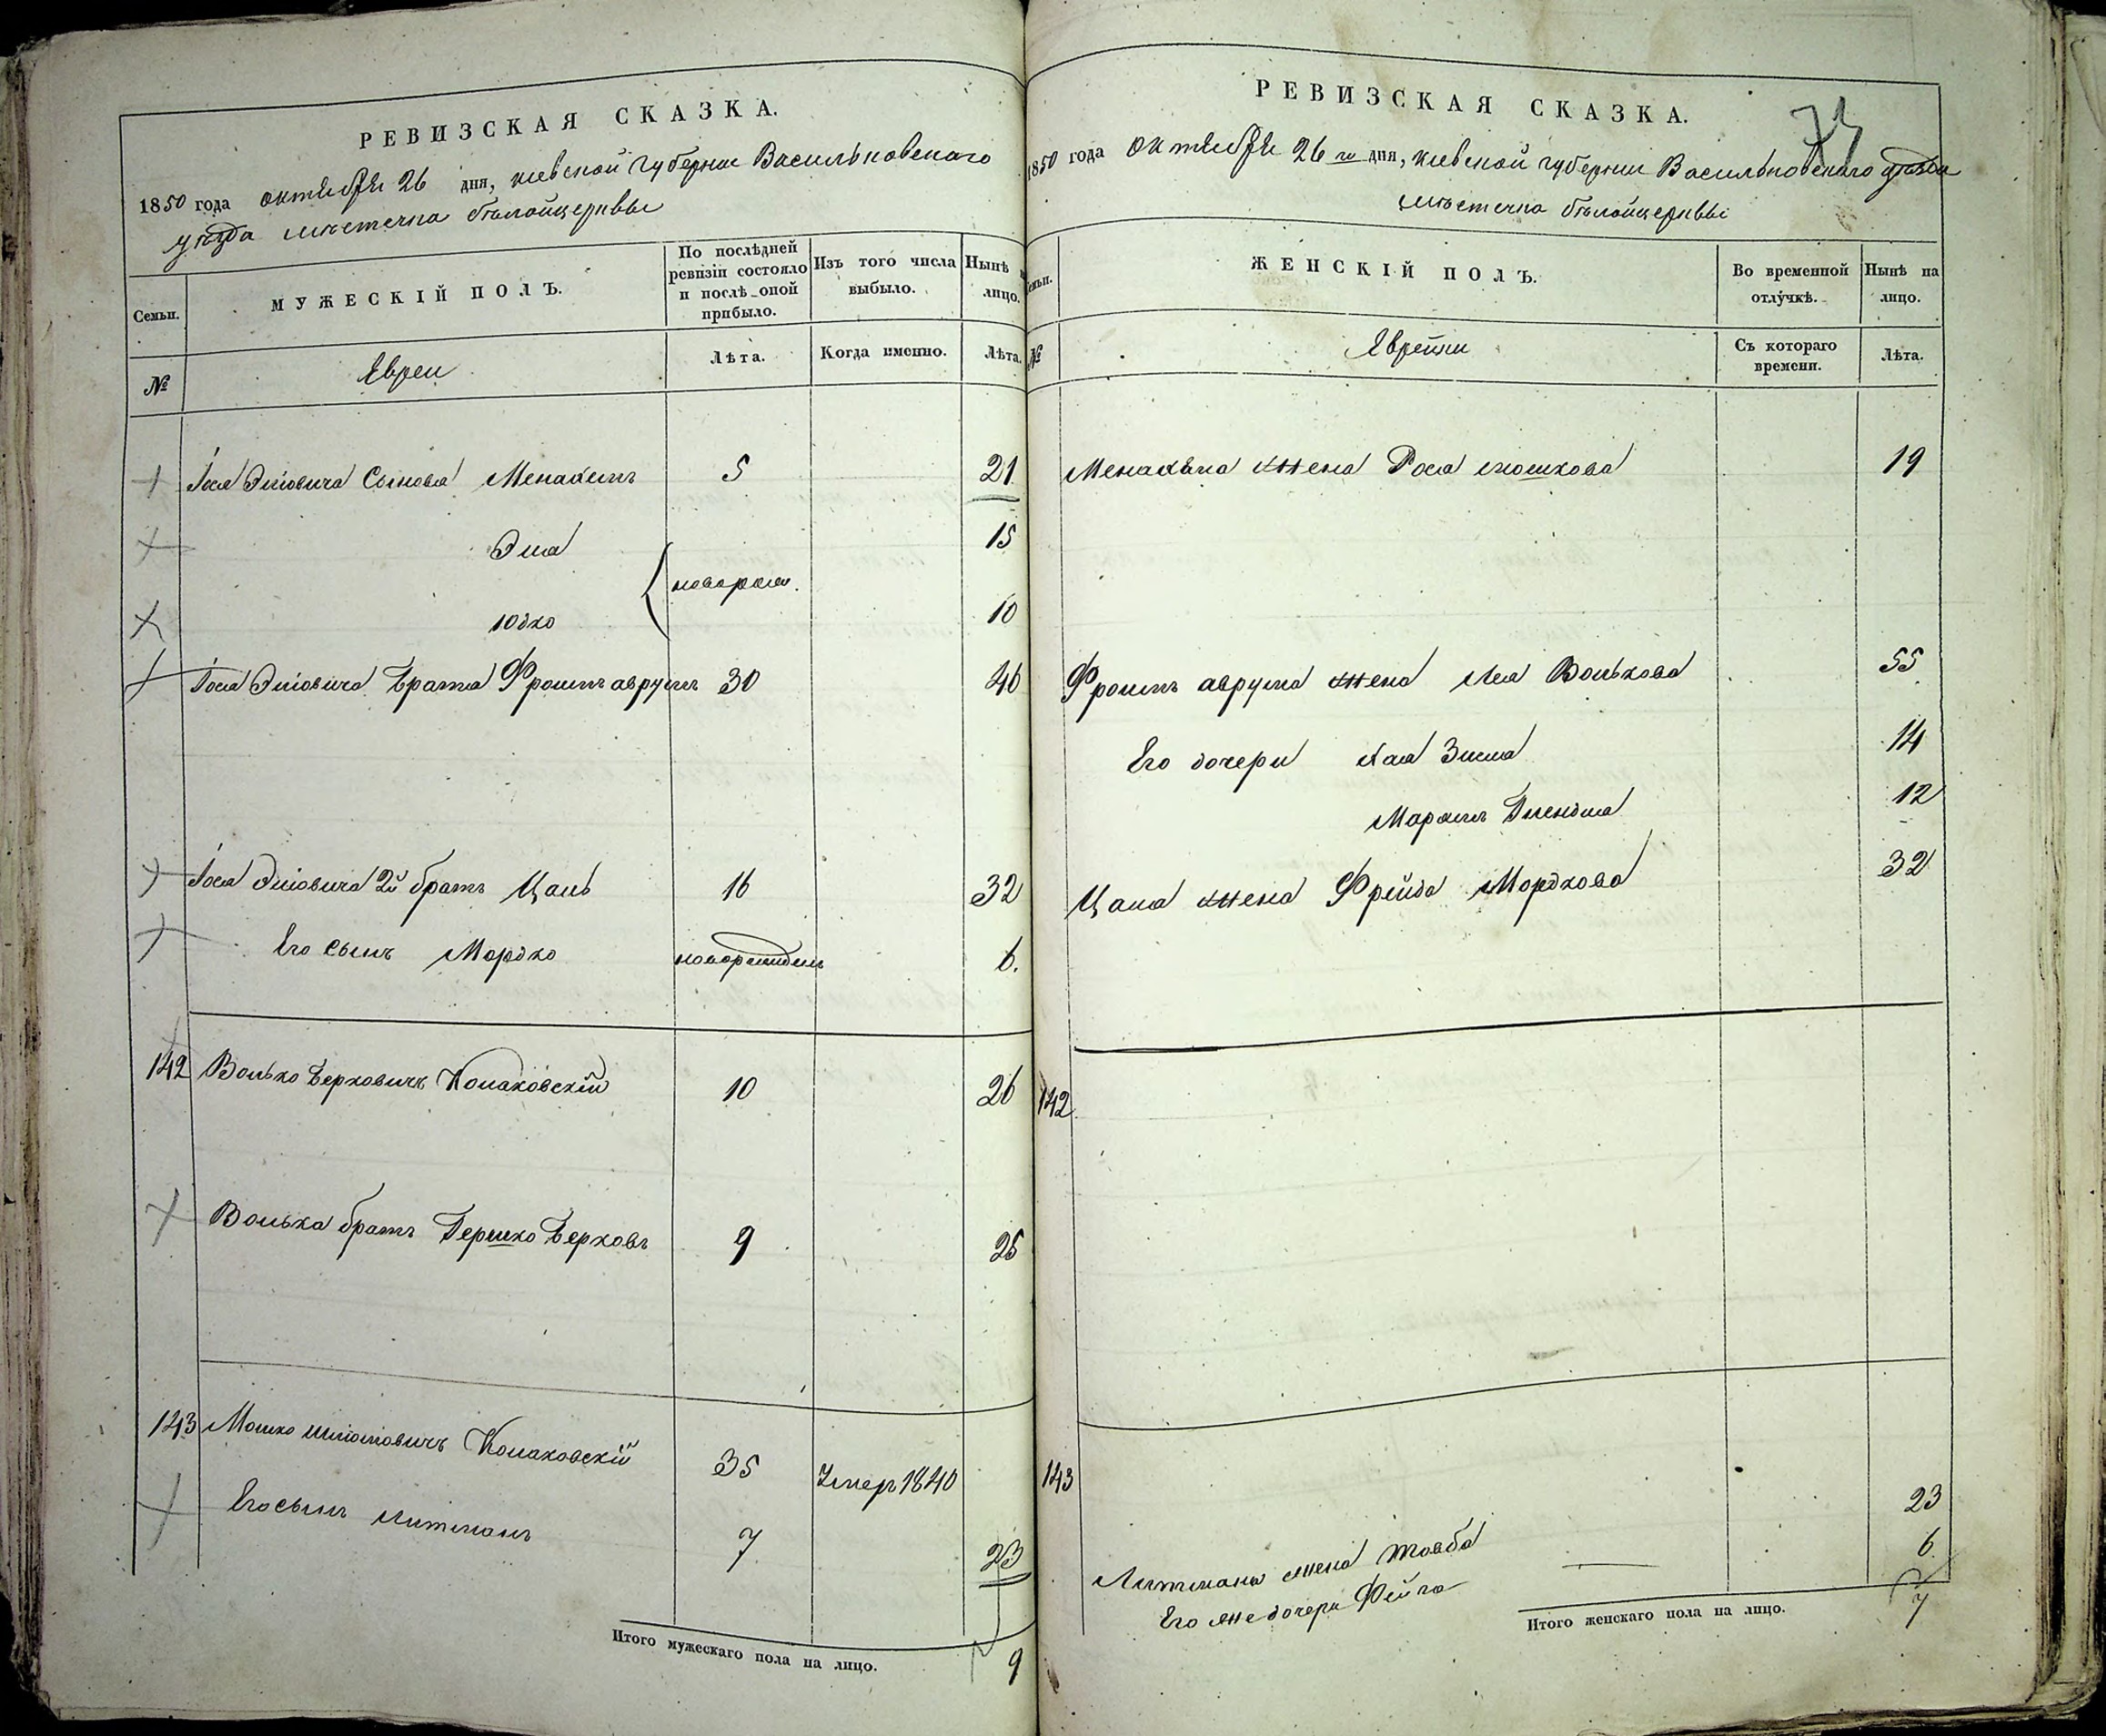 РЕВИЗСКАЯ СКАЗКА.
1850 года октября 26 дня, киевской губернии Васильковскаго
уѣзда мѣстечка бѣлойцеркви
Семьи.
МУЖЕСКІЙ ПОЛЪ.
По послѣдней ревизіи состояло и послѣ оной прибыло.
Изъ того числа выбыло.
Нынѣ на лицо.
№
Евреи
Лѣта.
Когда именно.
Лѣта.
Іося Эліовича Сыновья Менахемъ 5 21
Эла 15
новорож.
Юдко 10
Іося Эліовича Брата Фроимъ аврумъ 30 46
Іося Эліовича 2й братъ Цаль 16 32
Его сынъ Мордко новорожденъ 6.
142 Волько Берковичъ Полаковскій 10 26
Волька братъ Гершко Берковъ 9 25
143 Мошко Шліомовичъ Полаковскій 35 Умеръ 1840
Его сынъ Литманъ 7 23
Итого мужескаго пола на лицо. 9
РЕВИЗСКАЯ СКАЗКА.
73
1850 года октября 26 го дня, киевской губернии Васильковскаго уѣзда
мѣстечка бѣлойцеркви
Семьи.
ЖЕНСКІЙ ПОЛЪ.
Во временной отлучкѣ.
Нынѣ на лицо.
№
Еврейки
Съ котораго времени.
Лѣта.
Менахема жена Рося мошкова 19
Фроимъ аврума жена Лея Волькова 55
Его дочери Хая Зисла 14
Марьямъ Гнендла 12
Цаля жена Фрейда Мордкова 32
142
143
Литмана жена Товба 23
Его же дочери Фейга 6
Итого женскаго пола на лицо. 7